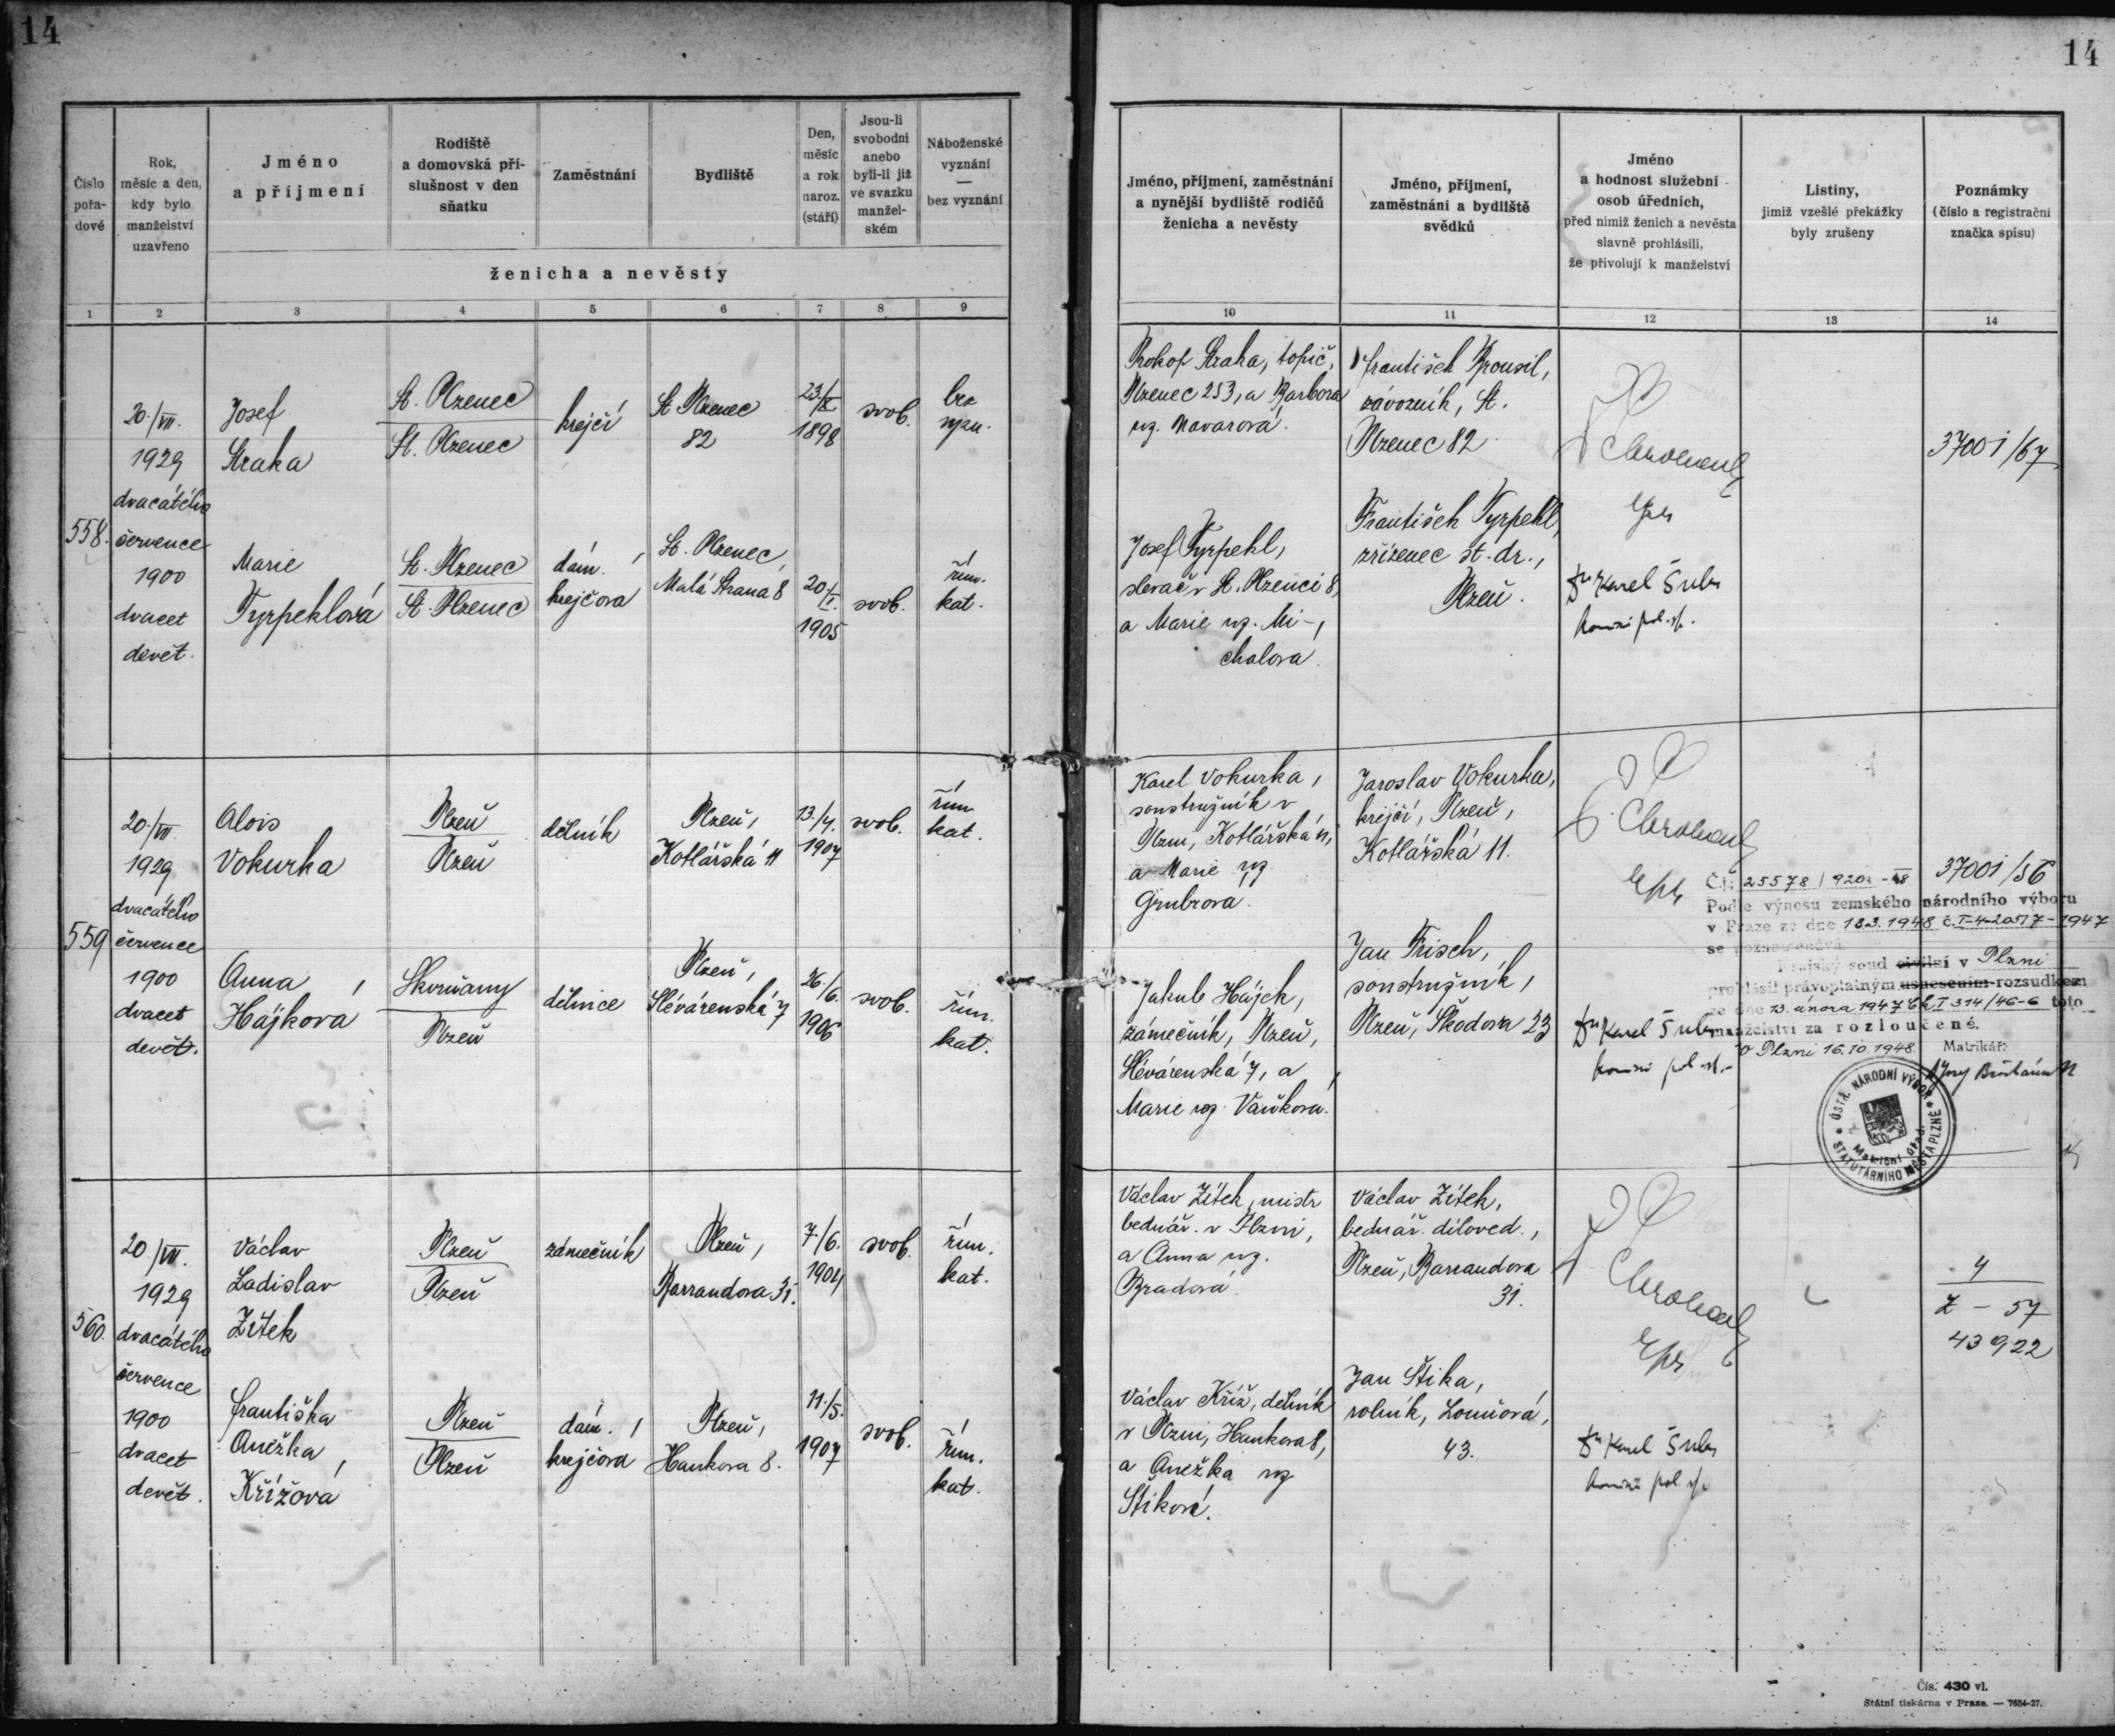 14
Číslo pořa-dové
Rok, měsíc a den, kdy bylo manželství uzavřeno
Jméno a příjmení
Rodiště a domovská pří-slušnost v den sňatku
Zaměstnání
Bydliště
Den, měsíc a rok naroz. (stáří)
Jsou-li svobodni anebo byli-li již ve svazku manžel-ském
Náboženské vyznání — bez vyznání
ženicha a nevěsty
1 2 3 4 5 6 7 8 9
558.
20./VII.
1929
dvacátého
července
1900
dvacet
devět.
Josef
Straka
St. Plzenec
St. Plzenec
krejčí
St. Plzenec
82
23./X.
1898
svob.
bez
vyzn.
Marie
Tyrpeklová
St. Plzenec
St. Plzenec
dám.
krejčová
St. Plzenec,
Malá Strana 8
20./I.
1905
svob.
řím.
kat.
559
20./VII.
1929
dvacátého
července
1900
dvacet
devět.
Alois
Vokurka
Plzeň
Plzeň
dělník
Plzeň,
Kotlářská 11
13./4.
1907
svob.
řím.
kat.
Anna
Hájková
Skvrňany
Plzeň
dělnice
Plzeň,
Slévárenská 7
26./6.
1906
svob.
řím.
kat.
560.
20./VII.
1929
dvacátého
července
1900
dvacet
devět.
Václav
Ladislav
Zítek
Plzeň
Plzeň
zámečník
Plzeň,
Barrandova 31.
7./6.
1904
svob.
řím.
kat.
Františka
Anežka
Křížová
Plzeň
Plzeň
dám.
krejčová
Plzeň,
Hankova 8.
11./5.
1907
svob.
řím.
kat.
14
Jméno, příjmení, zaměstnání a nynější bydliště rodičů ženicha a nevěsty
Jméno, příjmení, zaměstnání a bydliště svědků
Jméno a hodnost služební osob úředních, před nimiž ženich a nevěsta slavně prohlásili, že přivolují k manželství
Listiny, jimiž vzešlé překážky byly zrušeny
Poznámky (číslo a registrační značka spisu)
10 11 12 13 14
Prokop Straka, topič,
Plzenec 253, a Barbora
roz. Navarová.
František Brousil,
závozník, St.
Plzenec 82.
37001/67
Josef Tyrpekl,
slevač v St. Plzenci 8,
a Marie roz. Mi-
chalova.
František Tyrpekl,
zřízenec st. dr.,
Plzeň.
Dr Karel Šubr
Karel Vokurka,
soustružník v
Plzni, Kotlářská 11,
a Marie roz
Grubrová.
Jaroslav Vokurka,
krejčí, Plzeň,
Kotlářská 11.
37001/56
Čj. 25578/920 -48
Podle výnosu zemského národního výboru
v Praze ze dne 18.3.1948 č. I-4-2057/7-1947
se poznamenává:
Krajský soud civilní v Plzni
prohlásil právoplatným usnesením-rozsudkem
ze dne 13. února 1947 Ck I 314/46-6 toto
manželství za rozloučené.
V Plzni 16.10.1948. Matrikář:
ÚSTŘ. NÁRODNÍ VÝBOR
STATUTÁRNÍHO MĚSTA PLZNĚ
Matriční úřad
Jakub Hájek,
zámečník, Plzeň,
Slévárenská 7, a
Marie roz. Vaňkova.
Jan Frisch,
soustružník,
Plzeň, Škodova 23
Dr Karel Šubr
Václav Zítek, mistr
bednář. v Plzni,
a Anna roz.
Bradová.
Václav Zítek,
bednář. díloved.,
Plzeň, Barrandova
31.
4
Z - 57
43922
Václav Kříž, dělník
v Plzni, Hankova 8,
a Anežka roz
Štiková.
Jan Štika,
rolník, Louňová,
43.
Dr Karel Šubr
Čís. 430 vl.
Státní tiskárna v Praze. — 7654-27.